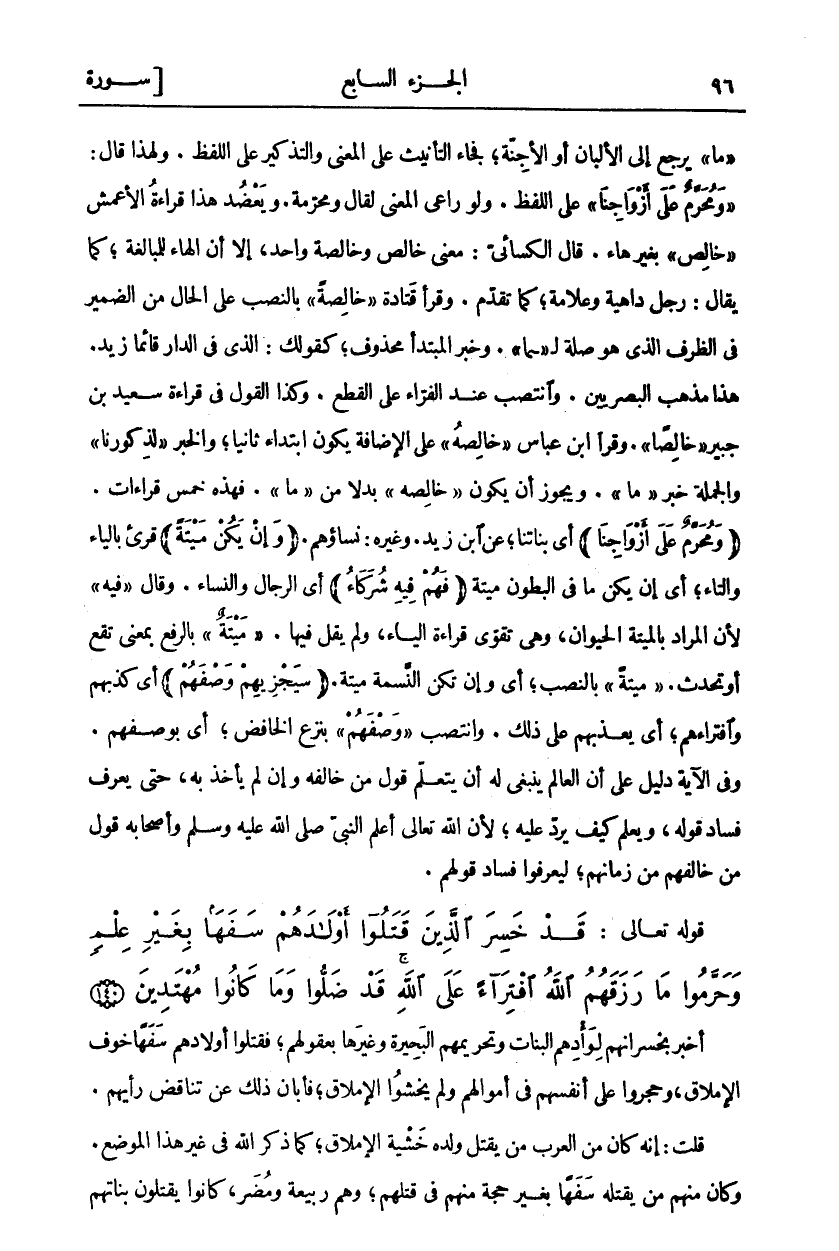 ٩٦ الجـــزء السـابع [ ســـورة
«ما» يرجع إلى الألبان أو الأجنّة؛ فجاء التأنيث على المعنى والتذكير على اللفظ . ولهذا قال :
«وَمُحَرَّمٌ عَلَى أَزْوَاجِنَا» على اللفظ . ولو راعى المعنى لقال ومحرّمة. ويَعْضُد هذا قراءةُ الأعمش
«خالِص» بغير هاء . قال الكسائىّ : معنى خالص وخالصة واحد، إلا أن الهاء للبالغة ؛ كما
يقال : رجل داهية وعلامة؛ كما تقدّم . وقرأ قَتادة «خالِصةً» بالنصب على الحال من الضمير
فى الظرف الذى هو صلة لـ«ـما» . وخبر المبتدأ محذوف؛ كقولك : الذى فى الدار قائما زيد.
هذا مذهب البصريين . وٱنتصب عنـد الفرّاء على القطع . وكذا القول فى قراءة سـعيد بن
جبير«خالِصًا».وقرأ ابن عباس «خالِصُهُ» على الإضافة يكون ابتداء ثانيا؛ والخبر «لذكورنا»
والجملة خبر « ما » . ويجوز أن يكون « خالِصه » بدلا من « ما » . فهذه خمس قراءات .
﴿ وَمُحَرَّمٌ عَلَى أَزْوَاجِنَا ﴾ أى بناتنا؛عن ٱبن زيد.وغيره: نساؤهم.﴿ وَإِنْ يَكُنْ مَيْتَةً ﴾ قرئ بالياء
والتاء؛ أى إن يكن ما فى البطون ميتة ﴿ فَهُمْ فِيهِ شُرَكَاءُ ﴾ أى الرجال والنساء . وقال «فيه»
لأن المراد بالميتة الحيوان، وهى تقوّى قراءة اليـاء، ولم يقل فيها . « مَيْتَةٌ » بالرفع بمعنى تقع
أوتحدث. « ميتةً » بالنصب؛ أى وإن تكن النَّسمة ميتة.﴿ سَيَجْزِيهِمْ وَصْفَهُمْ ﴾ أى كذبهم
وٱفتراءهم؛ أى يعـذبهم على ذلك . وانتصب «وَصْفَهُمْ» بنزع الخافض ؛ أى بوصـفهم .
وفى الآية دليل على أن العالم ينبغى له أن يتعـلّم قول من خالفه وإن لم يأخذ به، حتى يعرف
فساد قوله ، ويعلم كيف يردّ عليه ؛ لأن الله تعالى أعلم النبىّ صلى الله عليه وسلم وأصحابه قول
من خالفهم من زمانهم؛ ليعرفوا فساد قولهم .
قوله تعـالى : قَـــدْ خَسِرَ ٱلَّذِينَ قَتَلُوٓا أَوْلَٰدَهُمْ سَـفَهَۢا بِغَيْرِ عِلْـمٍ
وَحَرَّمُوا مَا رَزَقَهُمُ ٱللَّهُ ٱفْتِرَآءً عَلَى ٱللَّهِ ۚ قَدْ ضَلُّوا وَمَا كَانُوا مُهْتَدِينَ ﴿١٤٠﴾
أخبر بخسرانهم لِوَأْدِهم البنات وتحريمهم البَحِيرة وغيرَها بعقولهم ؛ فقتلوا أولادهم سَفَهًا خوف
الإملاق،وحجروا على أنفسهم فى أموالهم ولم يخشوُا الإملاق؛فأبان ذلك عن تناقض رأيهم .
قلت : إنه كان من العرب من يقتل ولده خَشْية الإملاق؛كما ذكر الله فى غير هذا الموضع.
وكان منهم من يقتله سَفَهًا بغـير حجة منهم فى قتلهم؛ وهم ربيعة ومُضَر، كانوا يقتلون بناتهم